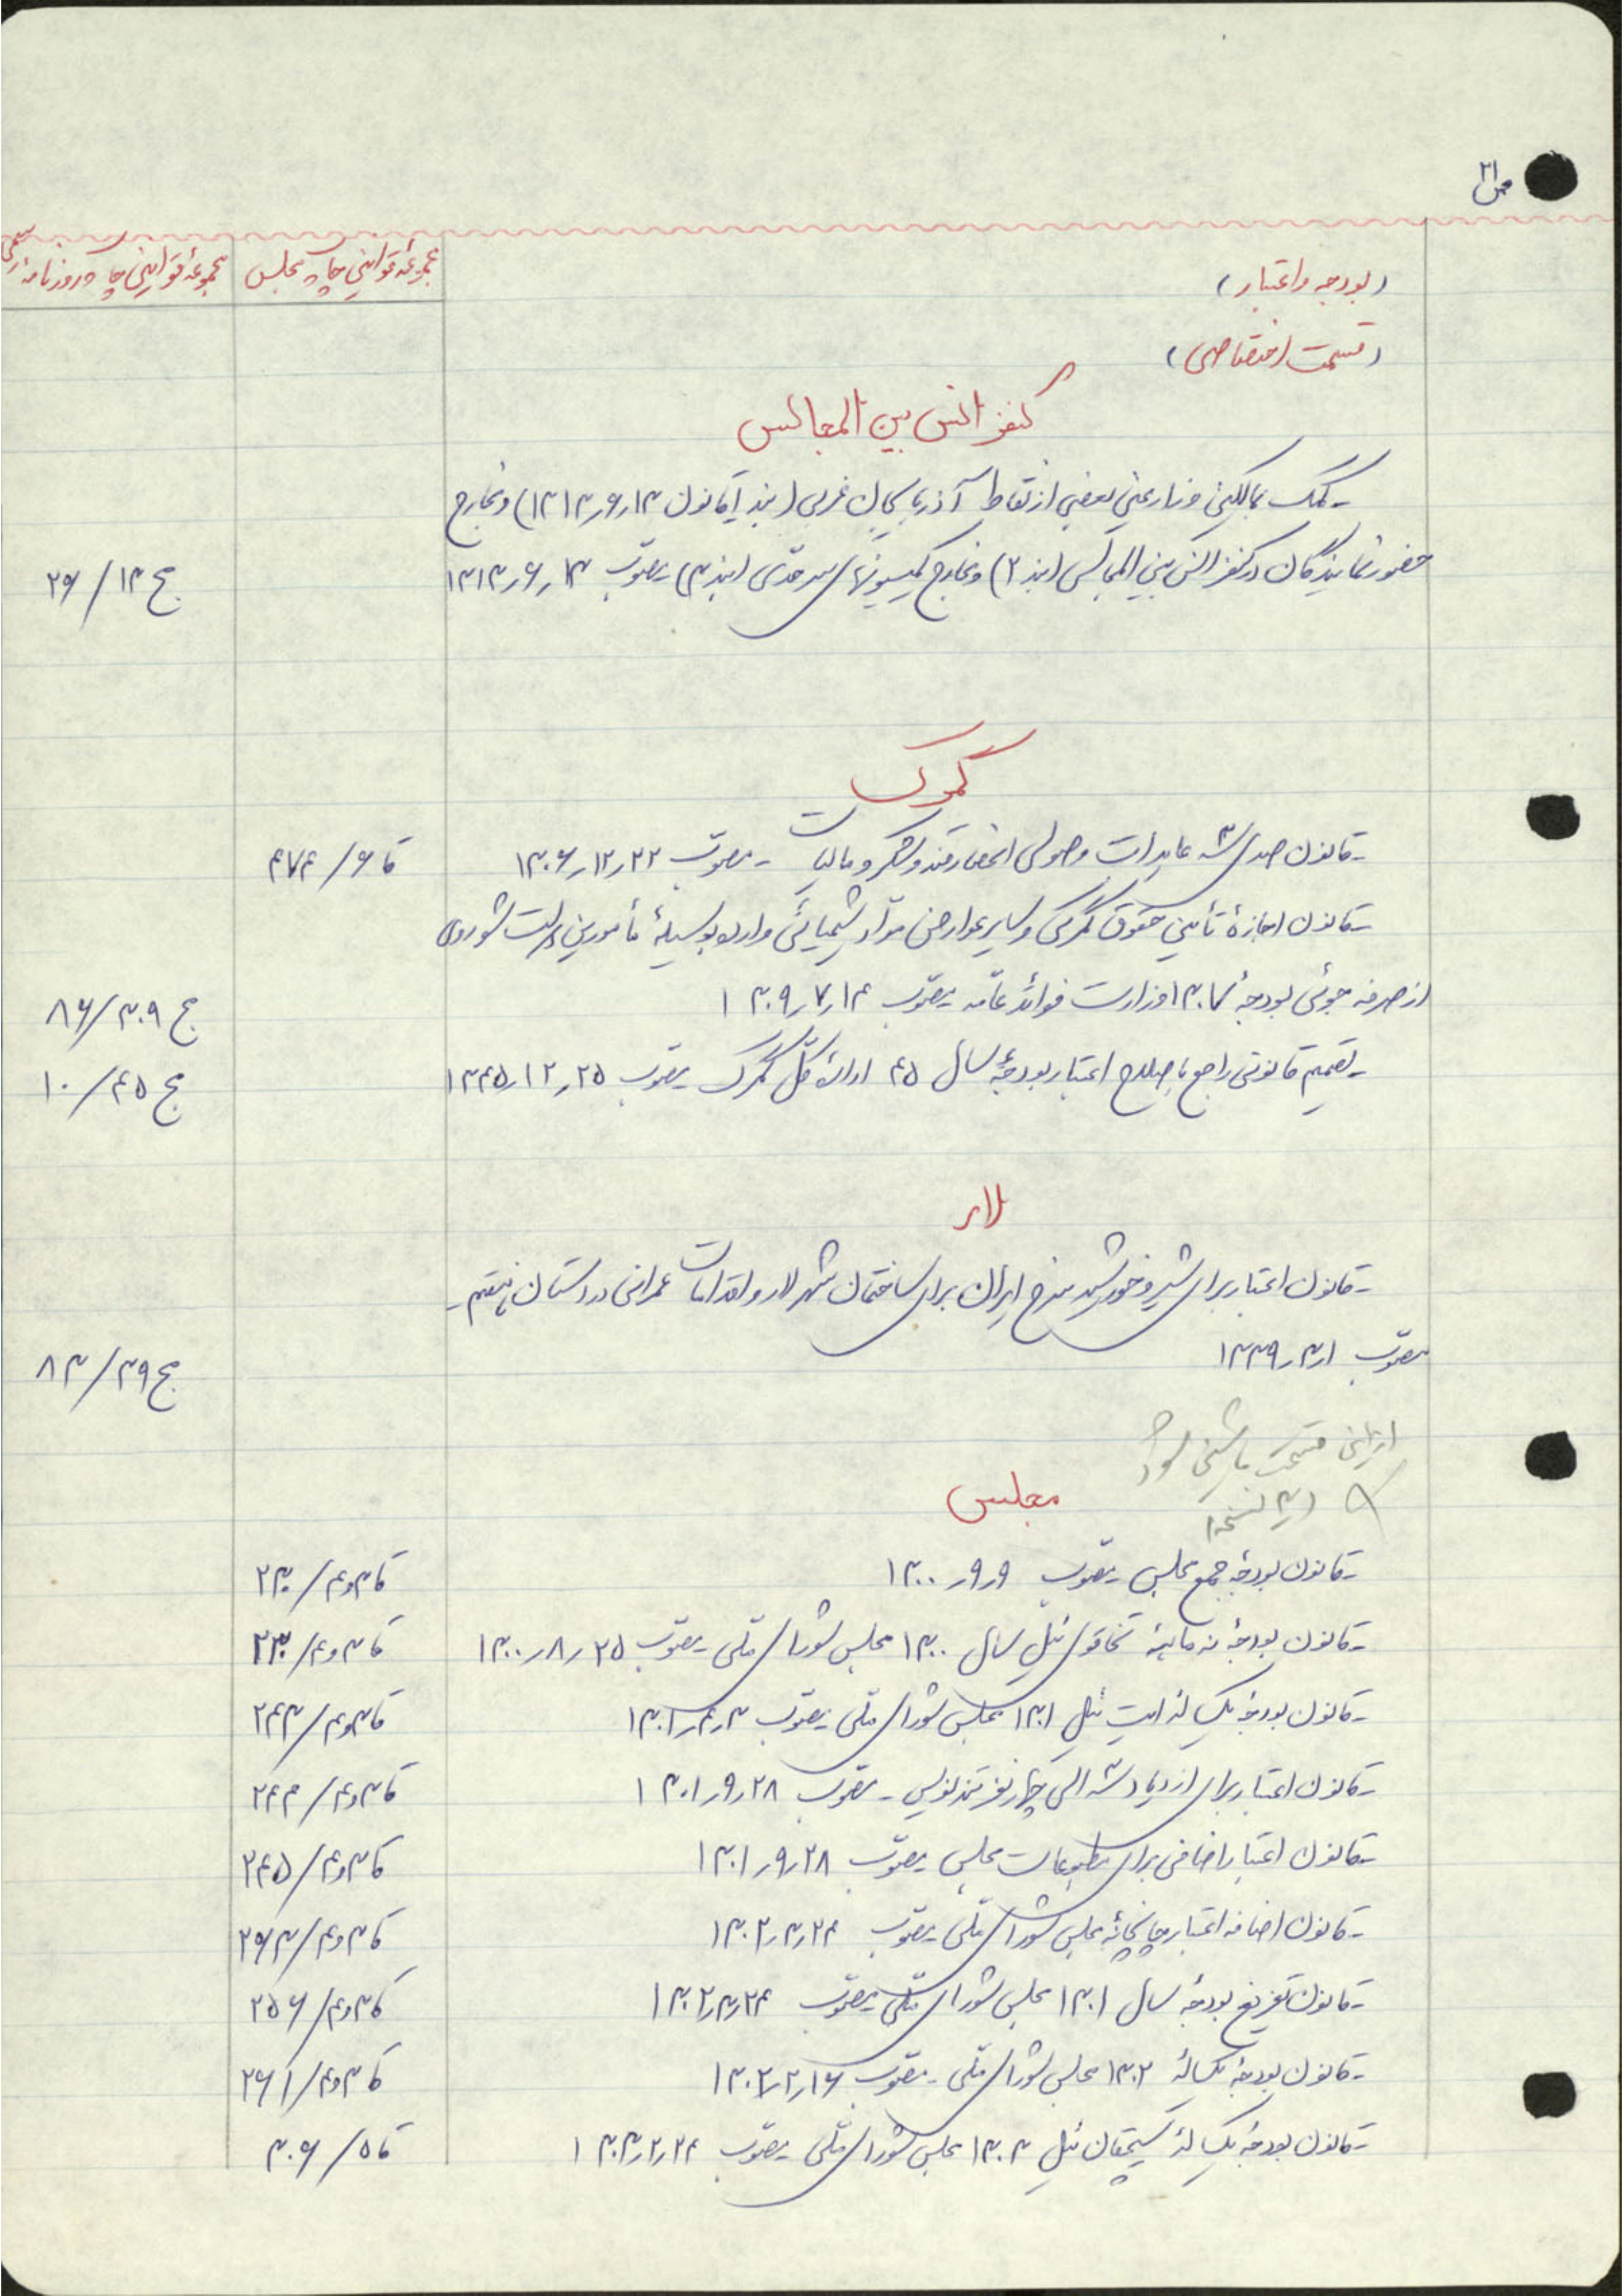 ص ۲۱
مجموعهٔ قوانین چاپ مجلس
مجموعهٔ قوانین چاپ روزنامهٔ رسمی
(بودجه و اعتبار)
(قسمت اختصاصی)
کنفرانس بین المجالس
- کمک بمالکین و زارعین بعضی از نقاط آذربایجان غربی (بند ۱ قانون ۱۳ر۶ر۱۳۱۳) و مخارج
حضور نمایندگان در کنفرانس بین المجالس (بند ۲) و مخارج کمیسیونهای سرحدی (بند ۳) مصوب ۱۳ر۶ر۱۳۱۳ مج ۱۳/ ۲۶
گمرک
- قانون صدی سه عایدات وصولی انحصار قند و شکر و مالیات - مصوب ۲۲ر۱۲ر۱۳۰۶ قا ۶/ ۴۷۴
- قانون اجازهٔ تأمین حقوق گمرکی و سایر عوارض مواد شیمیائی وارده بوسیلهٔ مأمورین دولت شوروی
از صرفه جوئی بودجهٔ ۱۳۰۷ وزارت فوائد عامه مصوب ۱۴ر۷ر۱۳۰۹ مج ۳۰۹/ ۸۶
- تصمیم قانونی راجع باصلاح اعتبار بودجهٔ سال ۴۵ ادارهٔ کل گمرک مصوب ۲۵ر۱۲ر۱۳۴۵ مج ۴۵/ ۱۰
لار
- قانون اعتبار برای شیر و خورشید سرخ ایران برای ساختمان شهر لار و اقدامات عمرانی در استان هفتم -
مصوب ۱ر۳ر۱۳۳۹ مج ۳۹/ ۸۳
از این قسمت ماشین شود
در ۳ نسخه
مجلس
- قانون بودجهٔ جمع مجلس مصوب ۹ر۹ر۱۳۰۰ قا ۳و۴/ ۲۳۰
- قانون بودجهٔ نه ماههٔ تخاقوی ئیل سال ۱۳۰۰ مجلس شورای ملی مصوب ۲۵ر۸ر۱۳۰۰ قا ۳و۴/ ۲۳۰
- قانون بودجهٔ یکساله ایت ئیل ۱۳۰۱ مجلس شورای ملی مصوب ۳ر۴ر۱۳۰۱ قا ۳و۴/ ۲۴۳
- قانون اعتبار برای ازدیاد سه الی چهار نفر تندنویس - مصوب ۲۸ر۹ر۱۳۰۱ قا ۳و۴/ ۲۴۴
- قانون اعتبار اضافی برای مطبوعات مجلس مصوب ۲۸ر۹ر۱۳۰۱ قا ۳و۴/ ۲۴۵
- قانون اضافه اعتبار چاپخانهٔ مجلس شورای ملی مصوب ۲۴ر۳ر۱۳۰۲ قا ۳و۴/ ۲۶۳
- قانون تفریغ بودجهٔ سال ۱۳۰۱ مجلس شورای ملی مصوب ۲۴ر۳ر۱۳۰۲ قا ۳و۴/ ۲۵۶
- قانون بودجهٔ یکسالهٔ ۱۳۰۲ مجلس شورای ملی - مصوب ۱۶ر۲ر۱۳۰۲ قا ۳و۴/ ۲۶۱
- قانون بودجهٔ یکسالهٔ سیچقان ئیل ۱۳۰۳ مجلس شورای ملی مصوب ۲۴ر۲ر۱۳۰۳ قا ۵/ ۳۰۶